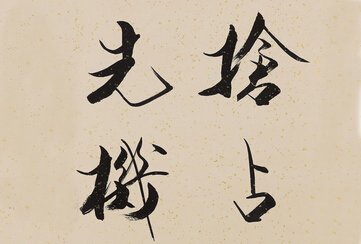 搶占
先機